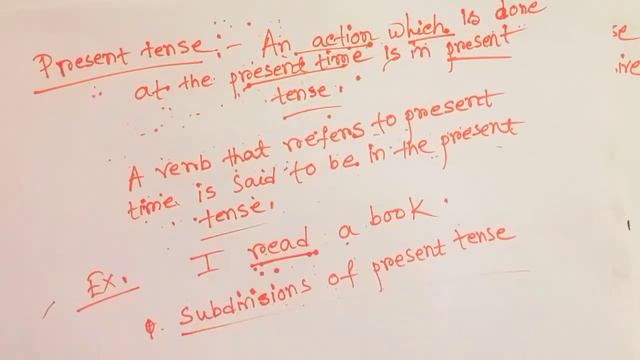 Present tense :- An action which is done
at the present time is in present
tense.
A verb that refers to present
time is said to be in the present
tense.
Ex. I read a book.
Subdivisions of present tense